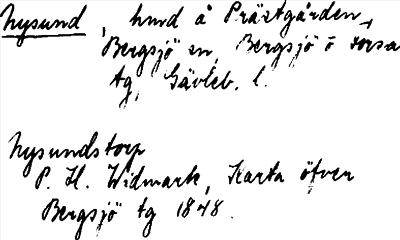 Nysund, hmd å Prästgården,
Bergsjö sn, Bergsjö o Forsa
tg, Gävleb. l.
Nysundstorp
P. H. Widmark, Karta öfver
Bergsjö tg 1848.